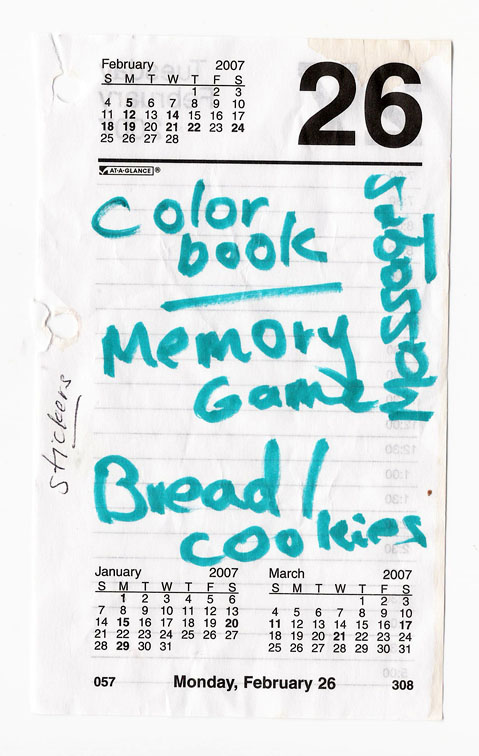 February 2007
S M T W T F S
1 2 3
4 5 6 7 8 9 10
11 12 13 14 15 16 17
18 19 20 21 22 23 24
25 26 27 28
26
AT-A-GLANCE®
Color
book
Memory
Game
Bread/
cookies
stickers
January 2007
S M T W T F S
1 2 3 4 5 6
7 8 9 10 11 12 13
14 15 16 17 18 19 20
21 22 23 24 25 26 27
28 29 30 31
March 2007
S M T W T F S
1 2 3
4 5 6 7 8 9 10
11 12 13 14 15 16 17
18 19 20 21 22 23 24
25 26 27 28 29 30 31
057 Monday, February 26 308